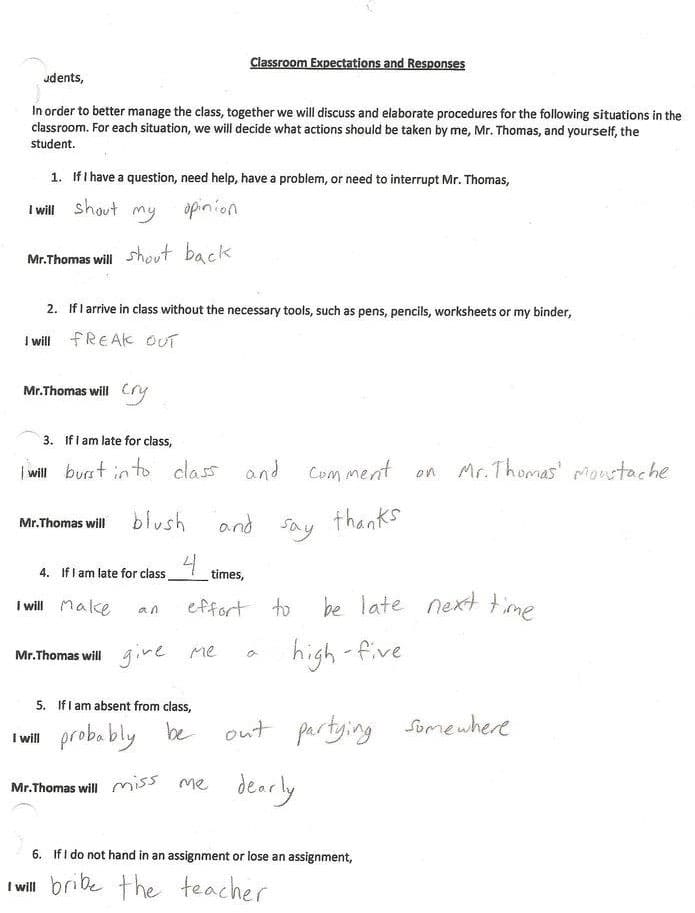 Classroom Expectations and Responses
udents,
In order to better manage the class, together we will discuss and elaborate procedures for the following situations in the
classroom. For each situation, we will decide what actions should be taken by me, Mr. Thomas, and yourself, the
student.
1. If I have a question, need help, have a problem, or need to interrupt Mr. Thomas,
I will shout my opinion
Mr.Thomas will shout back
2. If I arrive in class without the necessary tools, such as pens, pencils, worksheets or my binder,
I will fREAk OUT
Mr.Thomas will cry
3. If I am late for class,
I will burst into class and comment on Mr. Thomas' Moustache
Mr.Thomas will blush and say thanks
4. If I am late for class 4 times,
I will make an effort to be late next time
Mr.Thomas will give me a high-five
5. If I am absent from class,
I will probably be out partying somewhere
Mr.Thomas will miss me dearly
6. If I do not hand in an assignment or lose an assignment,
I will bribe the teacher